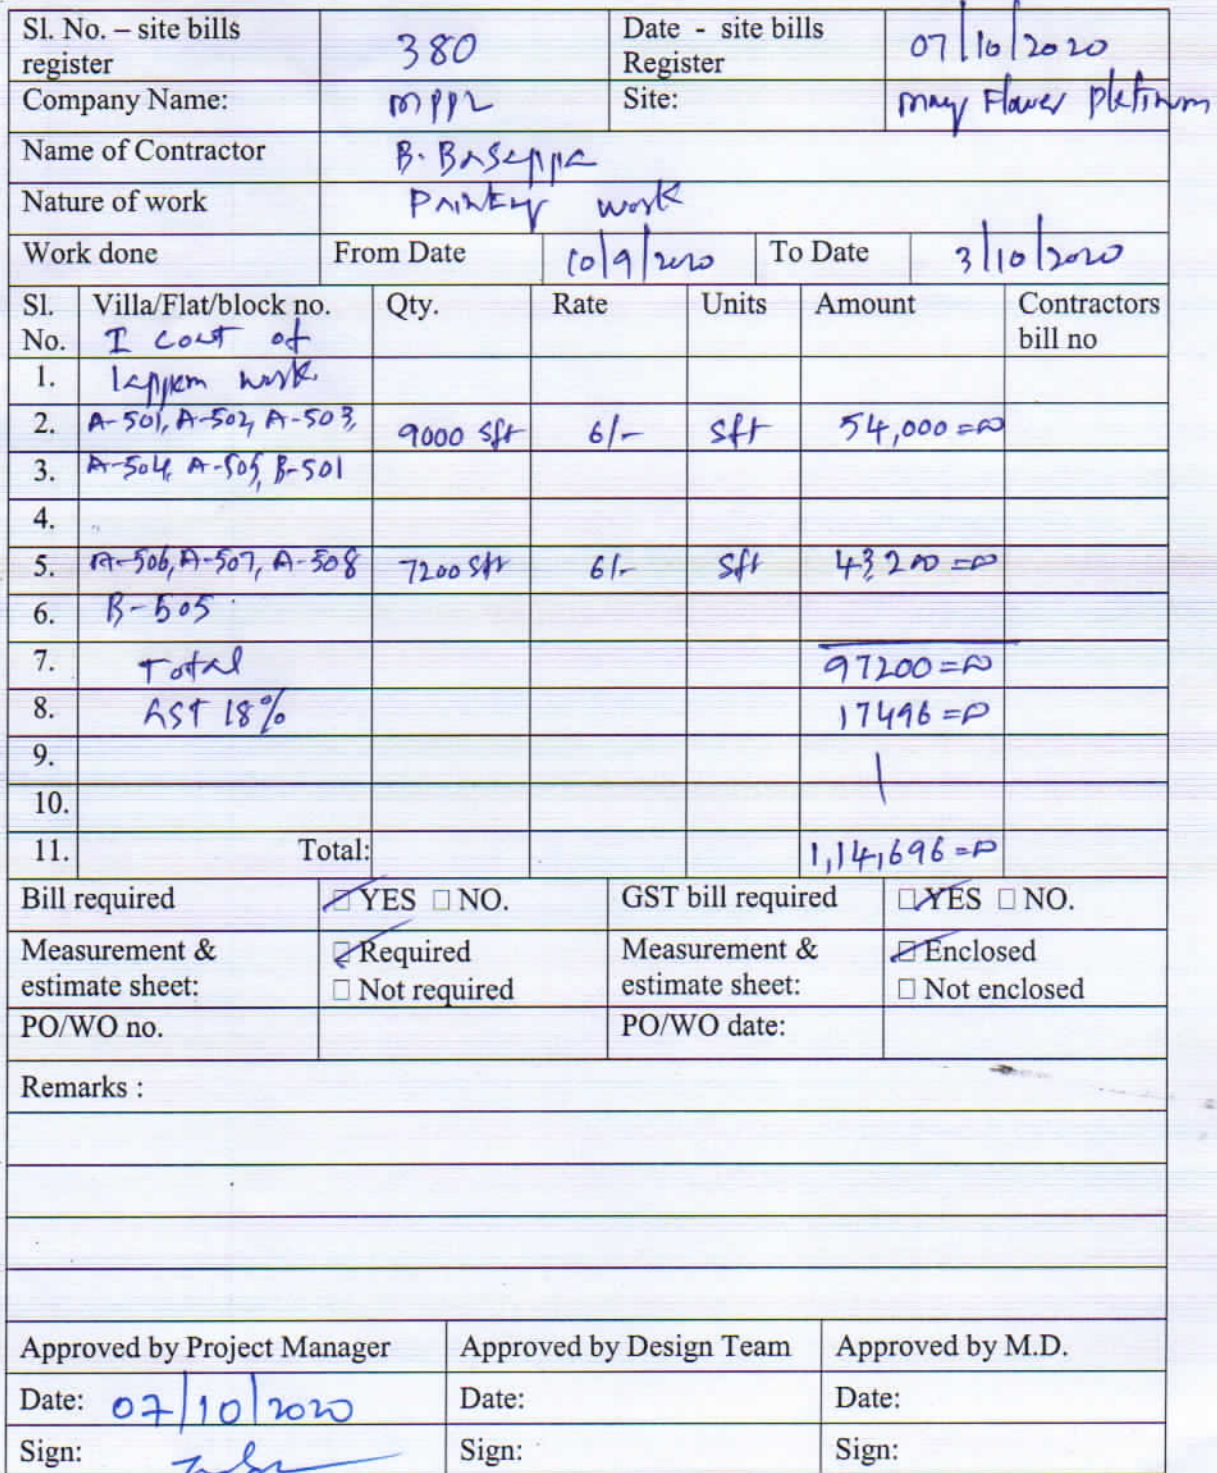 Sl. No. – site bills register 380 Date - site bills Register 07/10/2020
Company Name: MPPL Site: may Flower platinum
Name of Contractor B. Basappa
Nature of work Painting work
Work done From Date 10/9/2020 To Date 3/10/2020
Sl. No. Villa/Flat/block no. Qty. Rate Units Amount Contractors bill no
I coat of
1. lappem work.
2. A-501, A-502, A-503, 9000 sft 6/- sft 54,000=00
3. A-504, A-505, B-501
4.
5. A-506, A-507, A-508 7200 sft 6/- sft 43,200=00
6. B-505
7. Total 97200=00
8. GST 18% 17496=00
9.
10.
11. Total: 1,14,696=00
Bill required ☑ YES ☐ NO. GST bill required ☑ YES ☐ NO.
Measurement & estimate sheet: ☑ Required ☐ Not required Measurement & estimate sheet: ☑ Enclosed ☐ Not enclosed
PO/WO no. PO/WO date:
Remarks :
Approved by Project Manager Approved by Design Team Approved by M.D.
Date: 07/10/2020 Date: Date:
Sign: Sign: Sign: